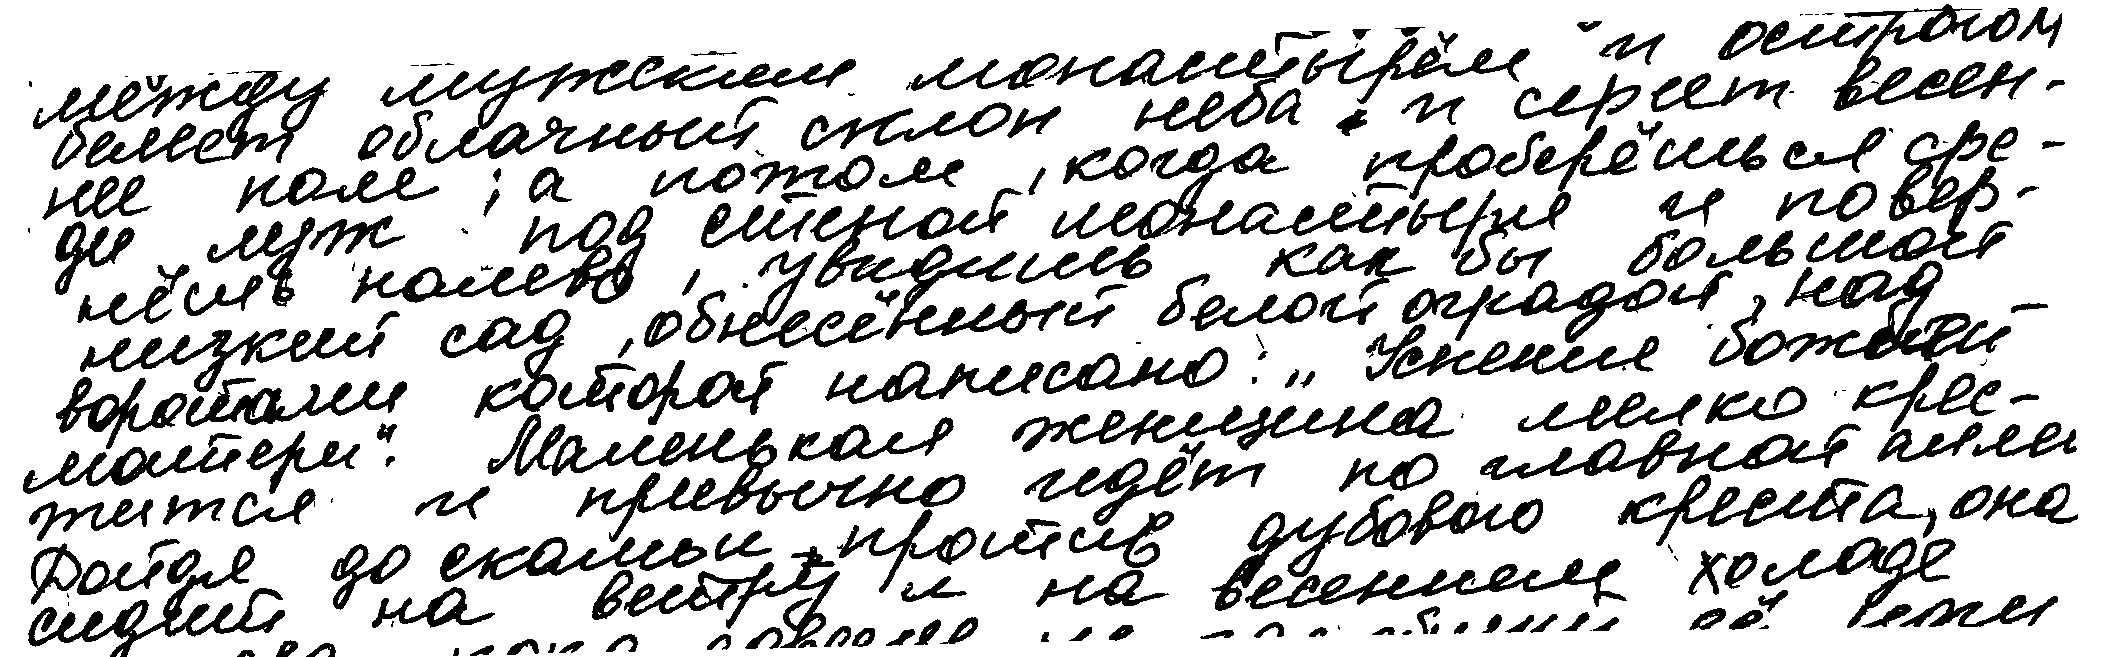 между мужским монастырём и острогом
белеет облачный склон неба и сереет весен-
нее поле; а потом, когда проберёшься сре-
ди луж под стеной монастыря и повер-
нёшь налево, увидишь как бы большой
низкий сад, обнесённый белой оградой, над
воротами которой написано: „Успение божией
матери". Маленькая женщина мелко крес-
тится и привычно идёт по главной аллеи
Дойдя до скамьи против дубового креста, она
сидит на ветру и на весеннем холоде
пока совсем не её